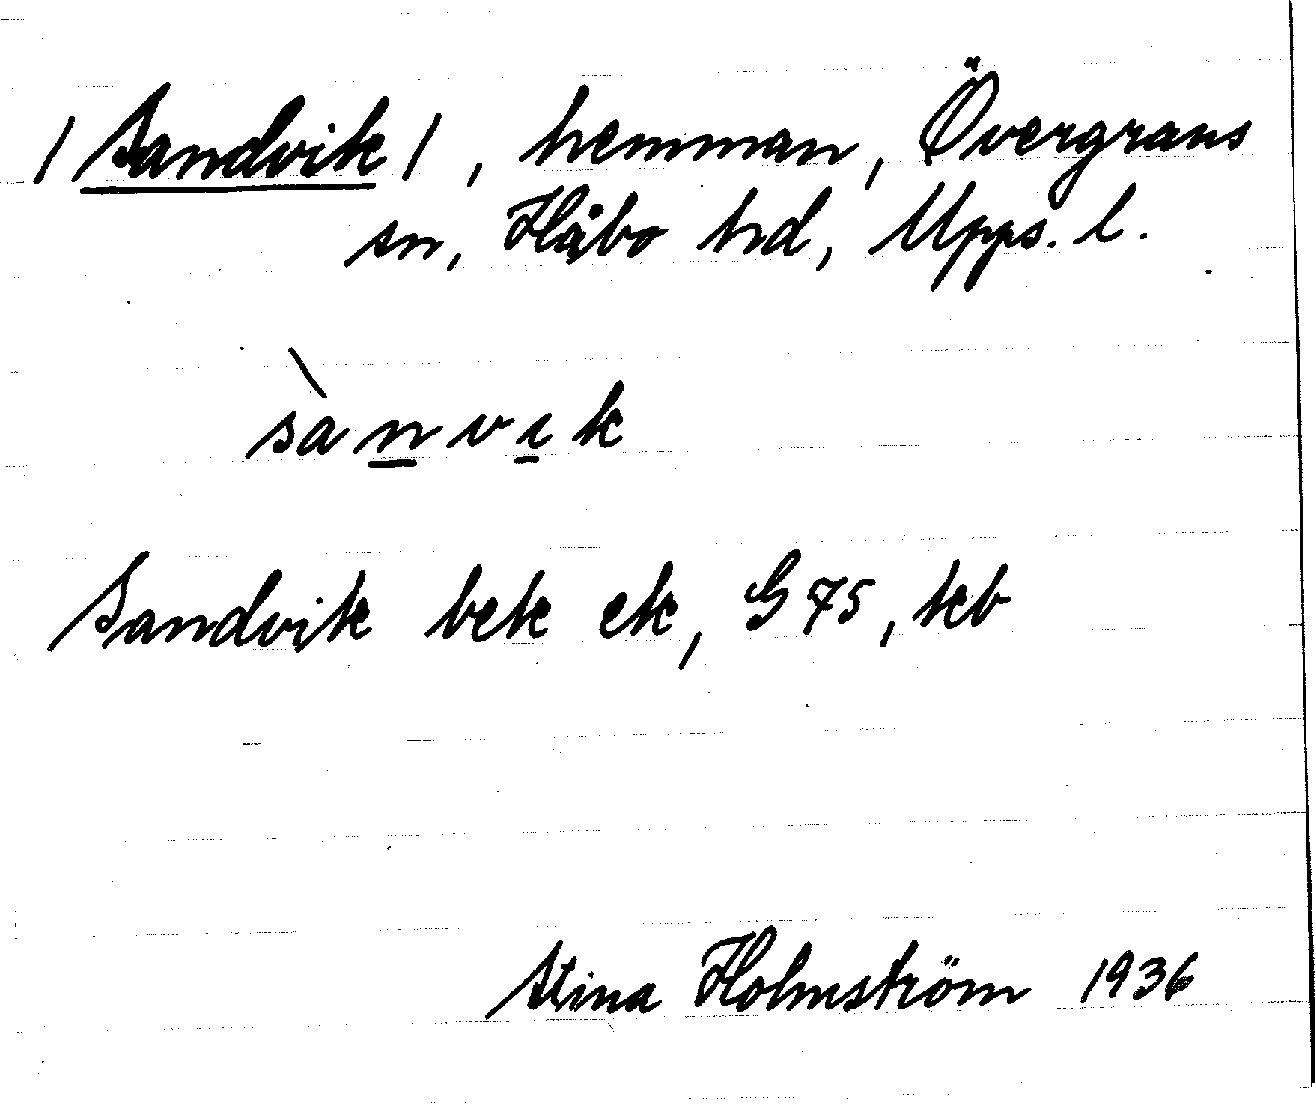 /Sandvik/, hemman, Övergrans
sn, Håbo hd, Upps. l.
sànvık
Sandvik bek ek, G 75, kb
Stina Holmström 1936